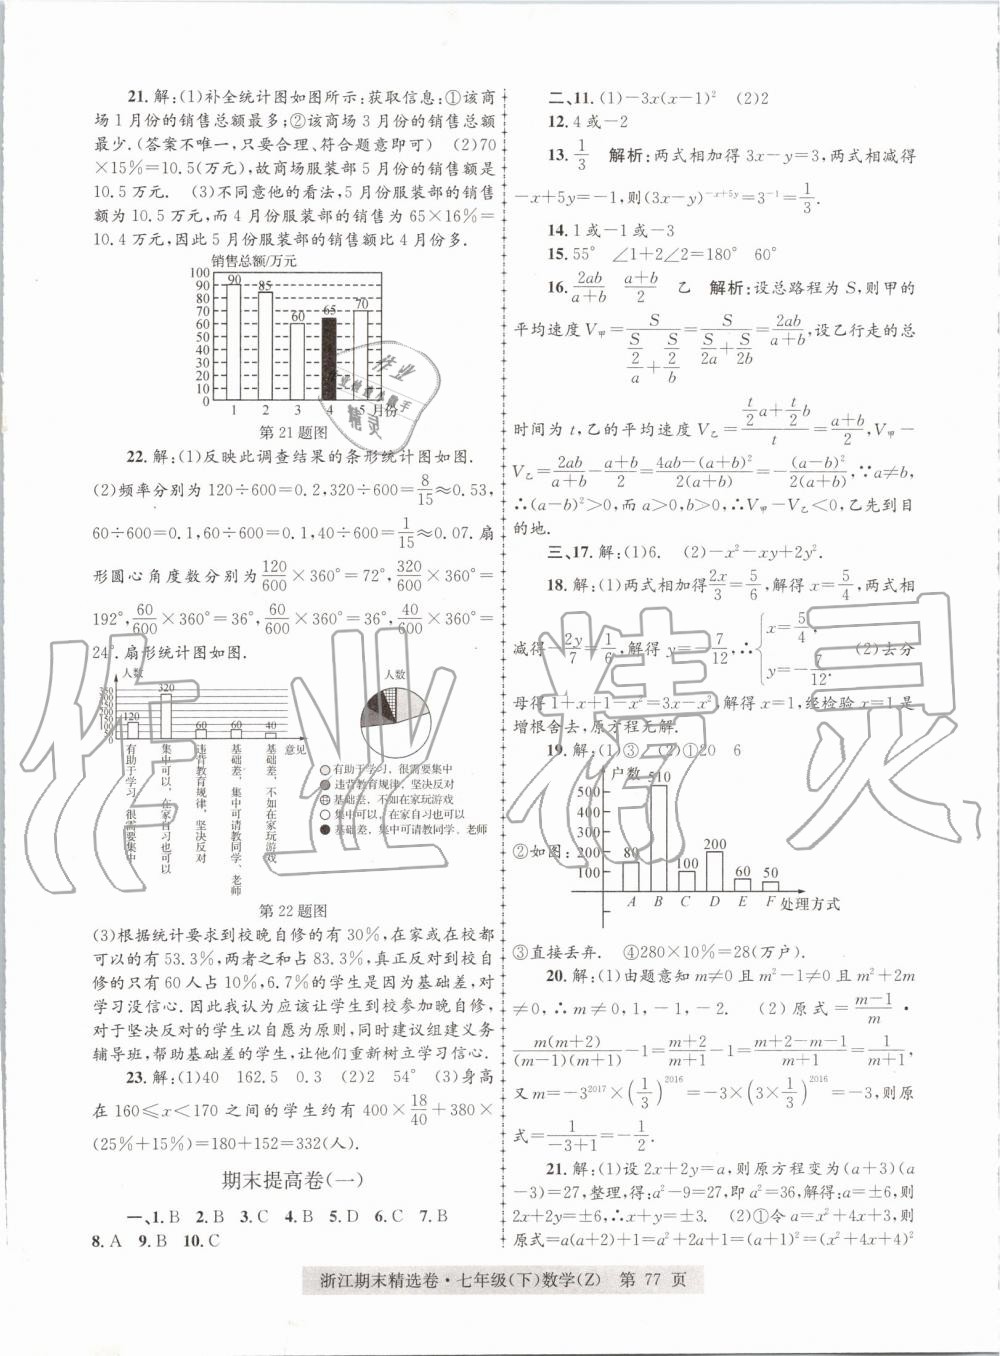 21. 解:(1)补全统计图如图所示:获取信息:①该商
场1月份的销售总额最多;②该商场3月份的销售总额
最少.(答案不唯一,只要合理、符合题意即可) (2)70
×15%=10.5(万元),故商场服装部5月份的销售额是
10.5万元. (3)不同意他的看法,5月份服装部的销售
额为10.5万元,而4月份服装部的销售额为65×16%=
10.4万元,因此5月份服装部的销售额比4月份多.
销售总额/万元
100
90
80
70
60
50
40
30
20
10
0
90 85 60 65 70
1 2 3 4 5 月份
第21题图
22. 解:(1)反映此调查结果的条形统计图如图.
(2)频率分别为120÷600=0.2,320÷600=8/15≈0.53,
60÷600=0.1,60÷600=0.1,40÷600=1/15≈0.07.扇
形圆心角度数分别为120/600×360°=72°,320/600×360°=
192°,60/600×360°=36°,60/600×360°=36°,40/600×360°=
24°.扇形统计图如图.
人数
350
300
250
200
150
100
50
0
120 320 60 60 40
意见
有助于学习,很需要集中
集中可以,在家自习也可以
违背教育规律,坚决反对
基础差,集中可请教同学、老师
基础差,不如在家玩游戏
人数
有助于学习,很需要集中
违背教育规律,坚决反对
基础差,不如在家玩游戏
集中可以,在家自习也可以
基础差,集中可请教同学、老师
第22题图
(3)根据统计要求到校晚自修的有30%,在家或在校都
可以的有53.3%,两者之和占83.3%,真正反对到校自
修的只有60人占10%,6.7%的学生是因为基础差,对
学习没信心.因此我认为应该让学生到校参加晚自修,
对于坚决反对的学生以自愿为原则,同时建议组建义务
辅导班,帮助基础差的学生,让他们重新树立学习信心.
23. 解:(1)40 162.5 0.3 (2)2 54° (3)身高
在160≤x<170之间的学生约有400×18/40+380×
(25%+15%)=180+152=332(人).
期末提高卷(一)
一、1. B 2. B 3. C 4. B 5. D 6. C 7. B
8. A 9. B 10. C
二、11. (1)-3x(x-1)² (2)2
12. 4或-2
13. 1/3 解析:两式相加得3x-y=3,两式相减得
-x+5y=-1,则(3x-y)^(-x+5y)=3⁻¹=1/3.
14. 1或-1或-3
15. 55° ∠1+2∠2=180° 60°
16. 2ab/(a+b) (a+b)/2 乙 解析:设总路程为S,则甲的
平均速度V甲=S/((S/2)/a+(S/2)/b)=S/(S/2a+S/2b)=2ab/(a+b),设乙行走的总
时间为t,乙的平均速度V乙=((t/2)a+(t/2)b)/t=(a+b)/2,V甲-
V乙=2ab/(a+b)-(a+b)/2=(4ab-(a+b)²)/(2(a+b))=-(a-b)²/(2(a+b)),∵a≠b,
∴(a-b)²>0,而a>0,b>0,∴V甲-V乙<0,乙先到目
的地.
三、17. 解:(1)6. (2)-x²-xy+2y².
18. 解:(1)两式相加得2x/3=5/6,解得x=5/4,两式相
减得-2y/7=1/6,解得y=-7/12,∴{x=5/4, y=-7/12. (2)去分
母得1+x+1-x²=3x-x²,解得x=1,经检验x=1是
增根舍去,原方程无解.
19. 解:(1)③ (2)①20 6
②如图:
户数
500
400
300
200
100
80 510 100 200 60 50
A B C D E F 处理方式
③直接丢弃. ④280×10%=28(万户).
20. 解:(1)由题意知m≠0且m²-1≠0且m²+2m
≠0,∴m≠0,1,-1,-2. (2)原式=(m-1)/m·
m(m+2)/((m-1)(m+1))-1=(m+2)/(m+1)-1=(m+2-m-1)/(m+1)=1/(m+1),
又m=-3²⁰¹⁷×(1/3)²⁰¹⁶=-3×(3×1/3)²⁰¹⁶=-3,则原
式=1/(-3+1)=-1/2.
21. 解:(1)设2x+2y=a,则原方程变为(a+3)(a
-3)=27,整理,得:a²-9=27,即a²=36,解得:a=±6,则
2x+2y=±6,∴x+y=±3. (2)①令a=x²+4x+3,则
原式=a(a+2)+1=a²+2a+1=(a+1)²=(x²+4x+
浙江期末精选卷·七年级(下)数学(Z) 第 77 页
作业精灵
作业
精灵